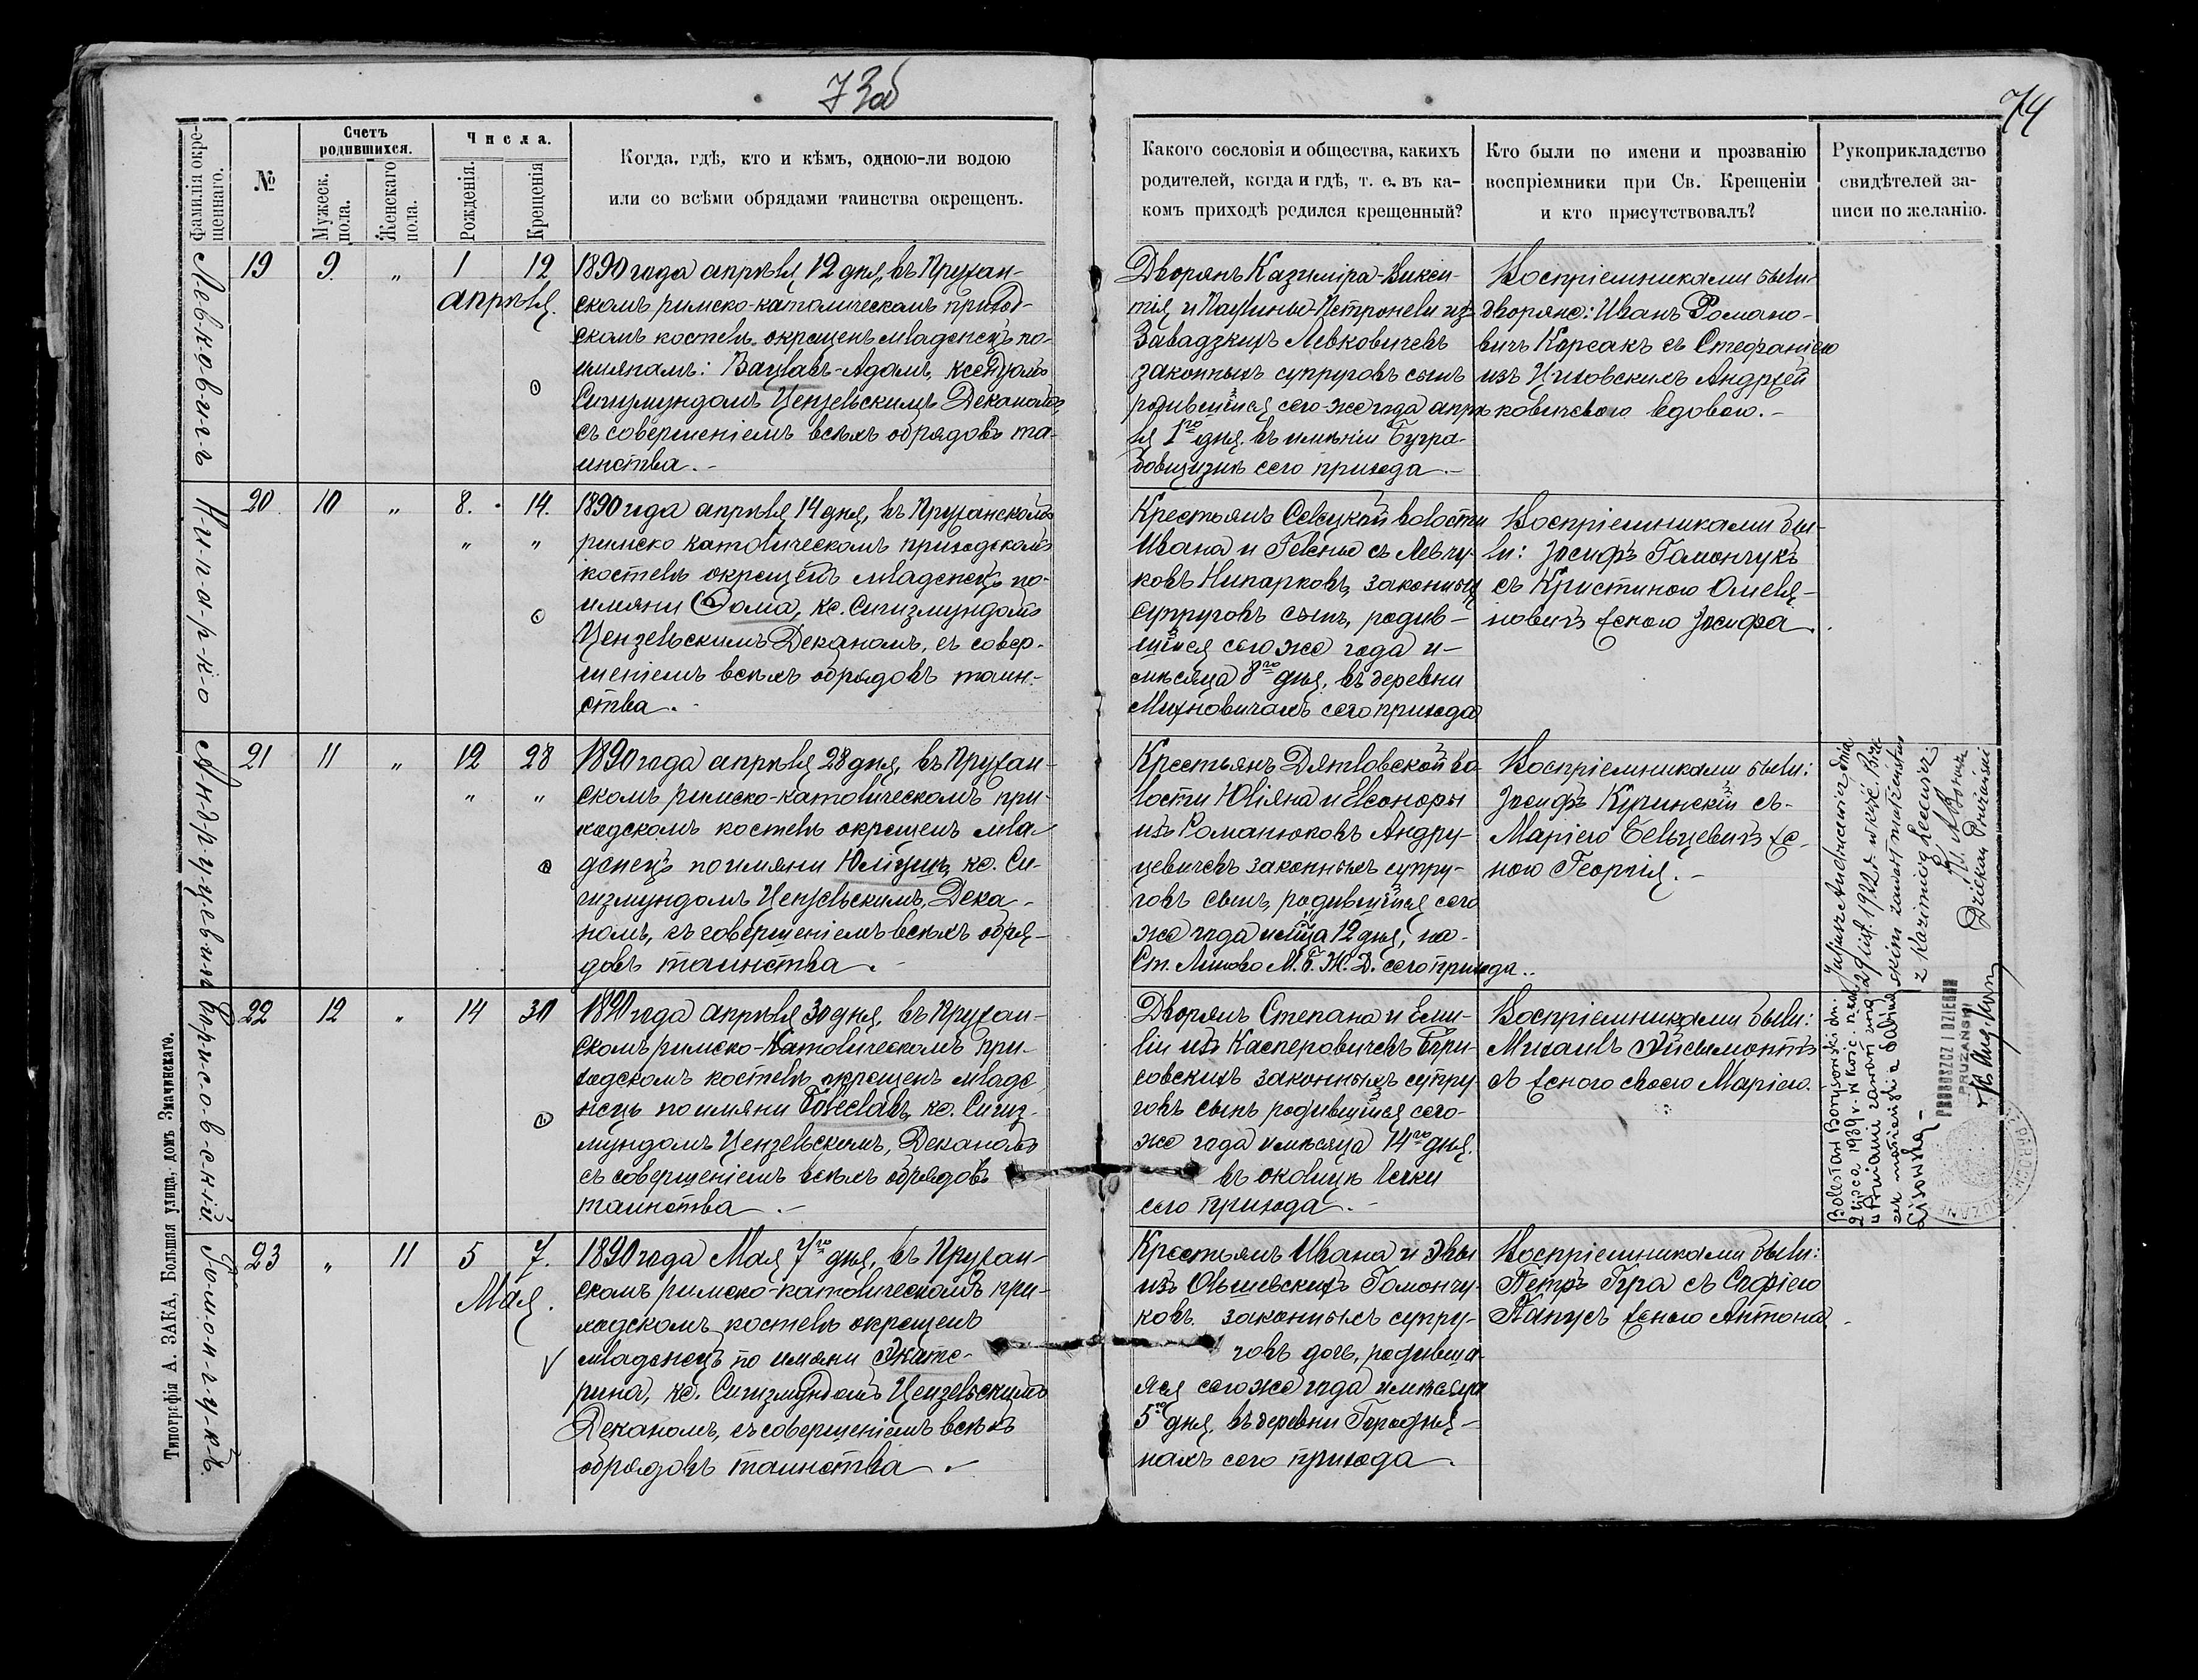 73об
74
Фамилія окре-
щеннаго.
№
Счетъ
родившихся.
Мужеск.
пола.
Женскаго
пола.
Числа.
Рожденія.
Крещенія
Когда, гдѣ, кто и кѣмъ, одною-ли водою
или со всѣми обрядами таинства окрещенъ.
Какого сословія и общества, какихъ
родителей, когда и гдѣ, т. е. въ ка-
комъ приходѣ родился крещенный?
Кто были по имени и прозванію
воспріемники при Св. Крещеніи
и кто присутствовалъ?
Рукоприкладство
свидѣтелей за-
писи по желанію.
Левковичъ
19 9. „ 1 12
апрѣля.
1890 года апрѣля 12 дня, въ Пружан-
скомъ римско-католическомъ приход-
скомъ костелѣ окрещенъ младенецъ по-
имянамъ: Вацлавъ-Адамъ, ксендзомъ
Сигизмундомъ Цензельскимъ Деканомъ,
съ совершеніемъ всѣхъ обрядовъ та-
инства.-
Дворянъ Казиміра-Викен-
тія и Паулины-Петронели изъ
Завадзкихъ Левковичевъ
законныхъ супруговъ сынъ
родившійся сего же года апрѣ
ля 1го дня въ имѣніи
сего прихода.-
Воспріемниками были
дворяне: Иванъ Романо-
вичъ Корсакъ съ Стефаніею
изъ Андржей
ковичевою вдовою.-
Нипарко
20 10 „ 8. 14.
„ „
1890 года апрѣля 14 дня, въ Пружанскомъ
римско католическомъ приходскомъ
костелѣ окрещенъ младенецъ по-
имяни Ѳома, кс. Сигизмундомъ
Цензельскимъ Деканомъ, съ совер-
шеніемъ всѣхъ обрядовъ таин-
ства.-
Крестьянъ Селецкой волости
Ивана и Гелены съ Левчу-
ковъ Нипарковъ, законныхъ
супруговъ сынъ, родив-
шійся сего же года и-
мѣсяца 8го дня, въ деревни
Михновичахъ сего прихода
Воспріемниками бы-
ли: Іосифъ Гамончукъ
съ Кристиною Омеля-
новичъ женою Іосифа.
Андруцевичъ
21 11 „ 12 28
„ „
1890 года апрѣля 28 дня, въ Пружан-
скомъ римско-католическомъ при-
ходскомъ костелѣ окрещенъ мла-
денецъ по имяни Юліушъ, кс. Си-
гизмундомъ Цензельскимъ, Дека-
номъ, съ совершеніемъ всѣхъ обря-
довъ таинства.
Крестьянъ Дятловской во-
лости Юліяна и Элеоноры
изъ Романюковъ Андру-
цевичевъ законныхъ супру-
говъ сынъ, родившійся сего
же года и мѣсяца 12 дня, на-
Ст. Линово М. Б. Ж. Д. сего прихода..
Воспріемниками были:
Іосифъ Куринскій съ-
Маріею Бельцевичъ же-
ною Георгія.-
Juljusz Andrucewicz dnia
29 list. 1922 r. w
zawarł małżeństwo
z Kazimierą Lecewicz
Dziekan Prużański
Борисовскій
22 12 „ 14 30
1890 года апрѣля 30 дня, въ Пружан-
скомъ римско-католическомъ при-
ходскомъ костелѣ окрещенъ младе
нецъ по имяни Болеславъ, кс. Сигиз-
мундомъ Цензельскимъ, Деканомъ
съ совершеніемъ всѣхъ обрядовъ
таинства.-
Дворянъ Степана и Еми-
ліи изъ Касперовичевъ Бори-
совскихъ законныхъ супру-
говъ сынъ родившійся сего-
же года и мѣсяца 14го дня
въ околицѣ
сего прихода.-
Воспріемниками были:
Михаилъ Эйсымонтъ
съ женою своею Маріею.
Bolesław Borysowski dn.
2 lipca 1939 r. w
zawarł zw
małżeński z Sabiną
Lisowską-
PROBOSZCZ I DZIEKAN
PRUŻAŃSKI
Гомончукъ
23 „ 11 5 7.
Мая.
1890 года Мая 7го дня, въ Пружан-
скомъ римско-католическомъ при-
ходскомъ костелѣ окрещенъ
младенецъ по имяни Экате-
рина, кс. Сигизмундомъ Цензельскимъ
Деканомъ, съ совершеніемъ всѣхъ
обрядовъ таинства.
Крестьянъ Ивана и Эвы
изъ Ольшевскихъ Гомончу-
ковъ законныхъ супру-
говъ дочь, родивша-
яся сего же года и мѣсяца
5го дня, въ деревни Городня-
нахъ сего прихода.
Воспріемниками были:
Петръ Гура съ Софіею
Папусъ женою Антона.
Типографія А. ЗАКА, Большая улица, домъ Знаминскаго.